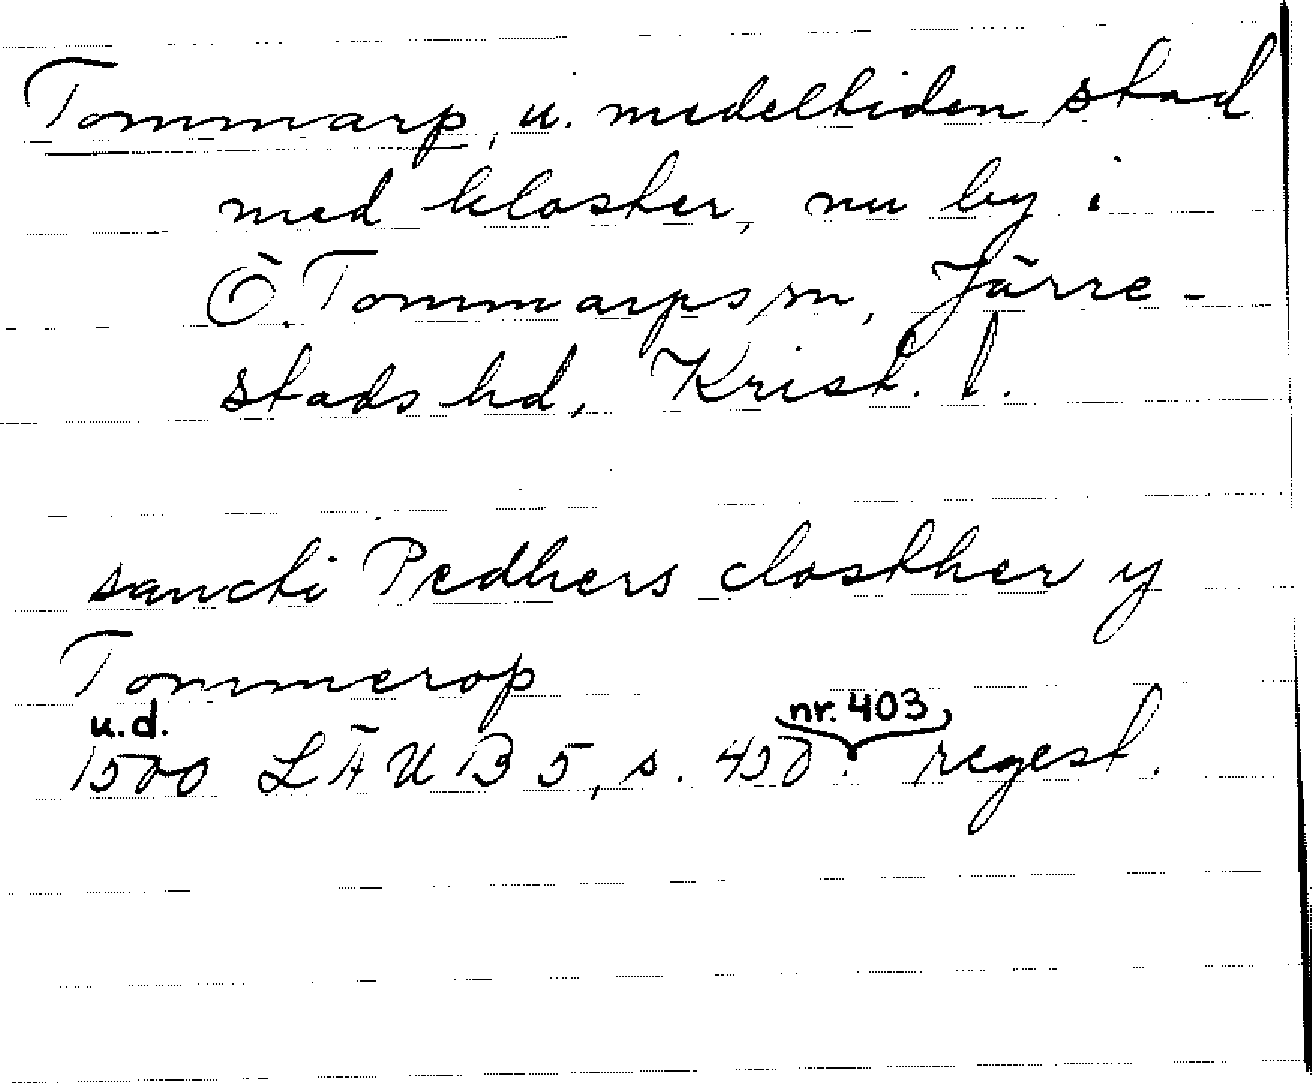 Tommarp, u. medeltiden stad
med kloster, nu by i
Ö. Tommarps sn, Järre-
stads hd, Krist. l.
sancti Pedhers closther y
Tommerop
u.d. nr. 403
1500 LÄUB 5, s. 450. regest.